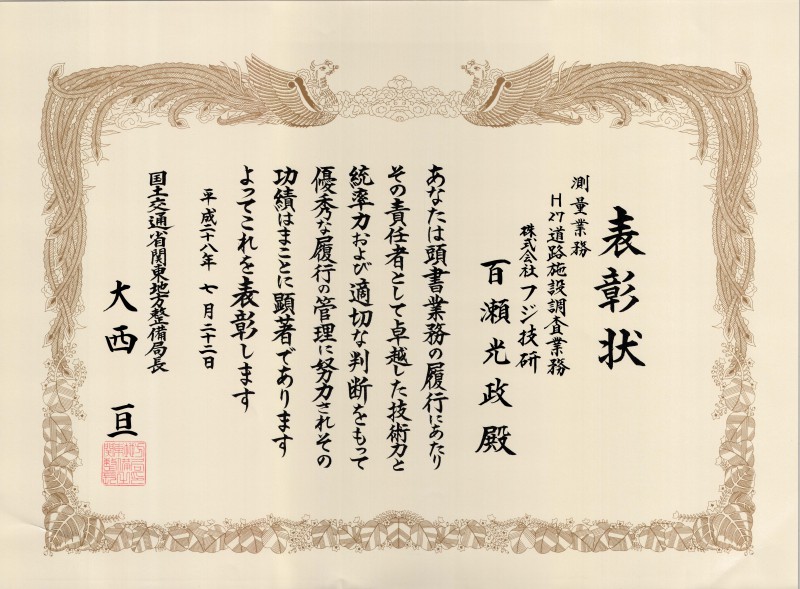 表彰状
測量業務
H27道路施設調査業務
株式会社フジ技研
百瀬光政殿
あなたは頭書業務の履行にあたり
その責任者として卓越した技術力と
統率力および適切な判断をもって
優秀な履行の管理に努力されその
功績はまことに顕著であります
よってこれを表彰します
平成二十八年 七月二十二日
国土交通省関東地方整備局長
大西 亘